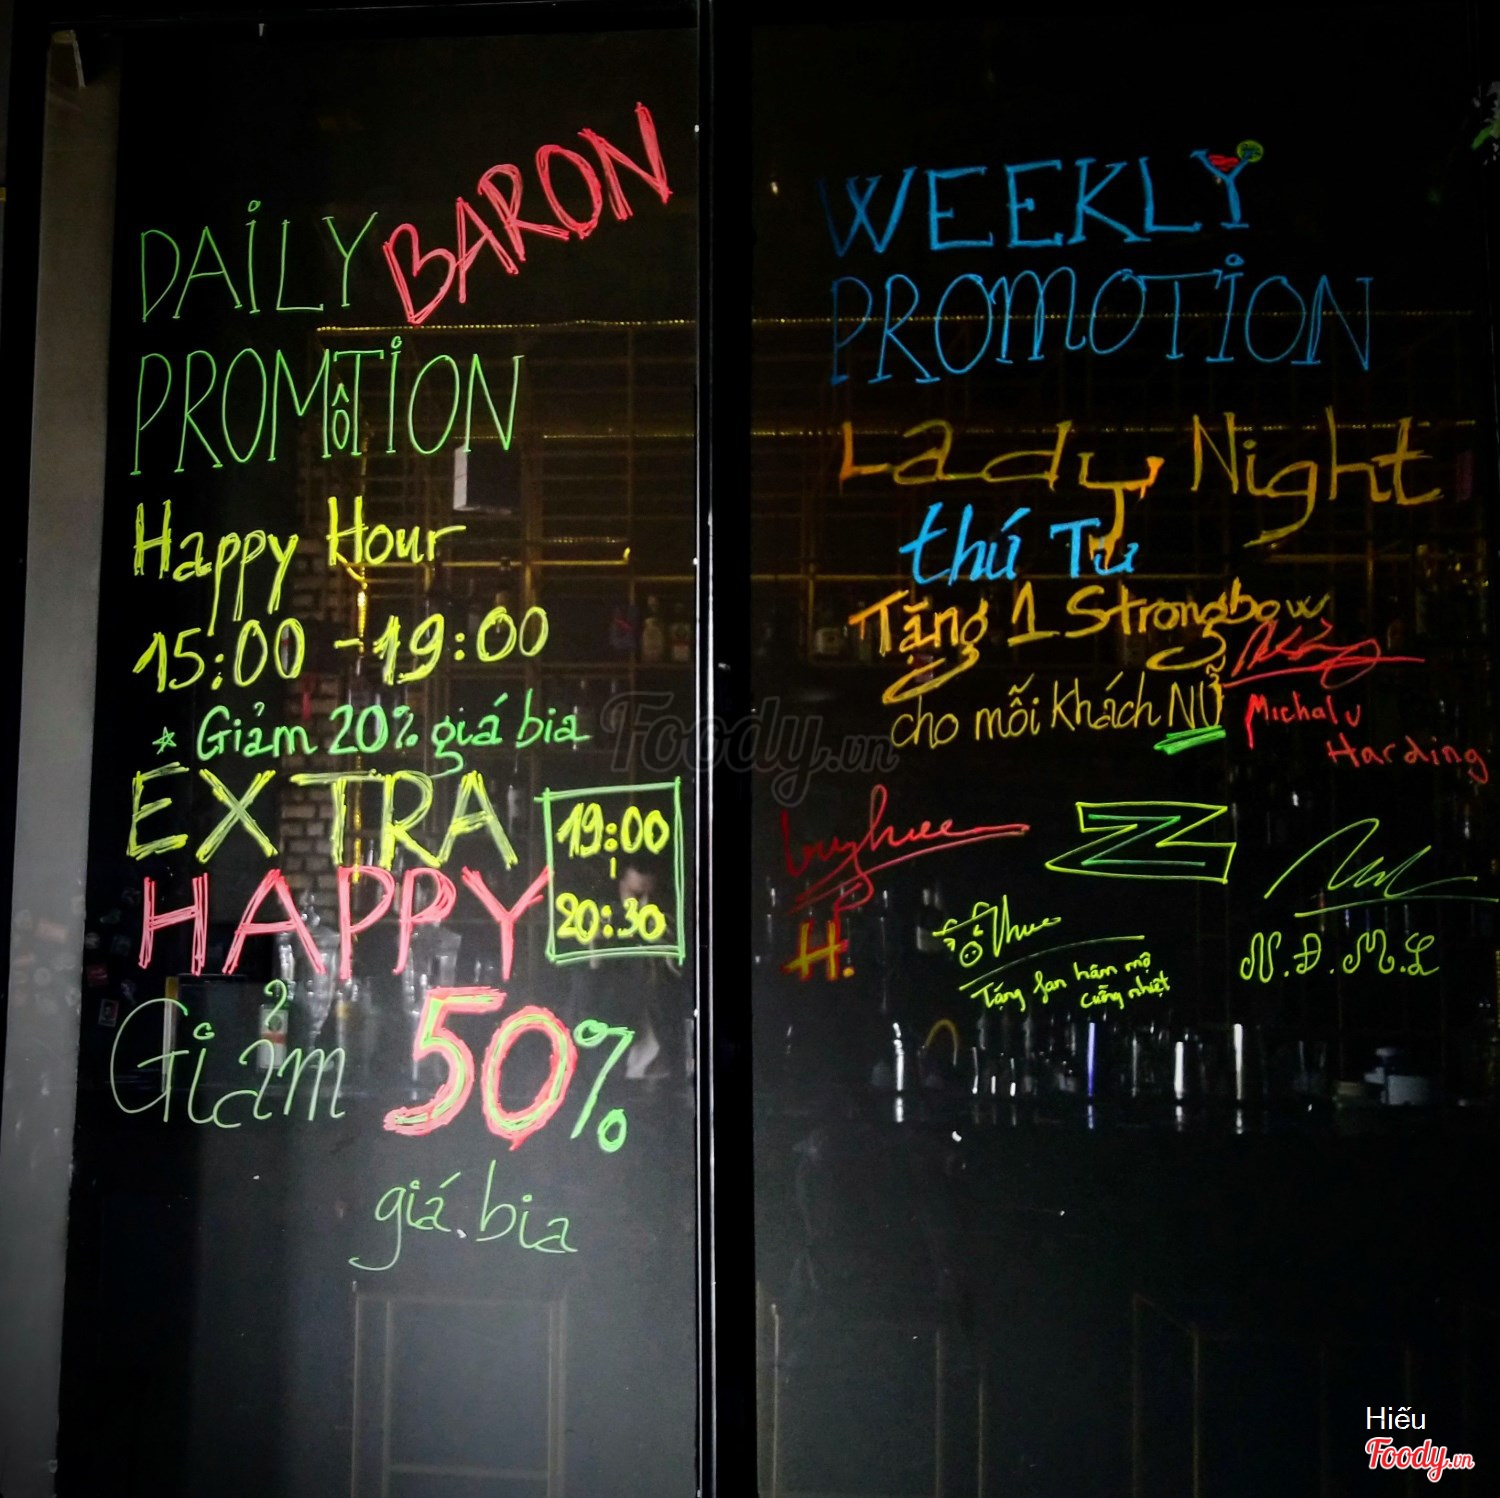 DAILY BARON
PROMÔTION
Happy Hour
15:00 - 19:00
* Giảm 20% giá bia
EXTRA
HAPPY
19:00
-
20:30
Giảm 50%
giá bia
WEEKLY
PROMOTION
Lady Night
thứ Tư
Tặng 1 Strongbow
cho mỗi khách NỮ
Harding
H.
Z
Tặng fan hâm mộ
cuồng nhiệt
N.Đ.M.L
Foody.vn
Hiếu
Foody.vn